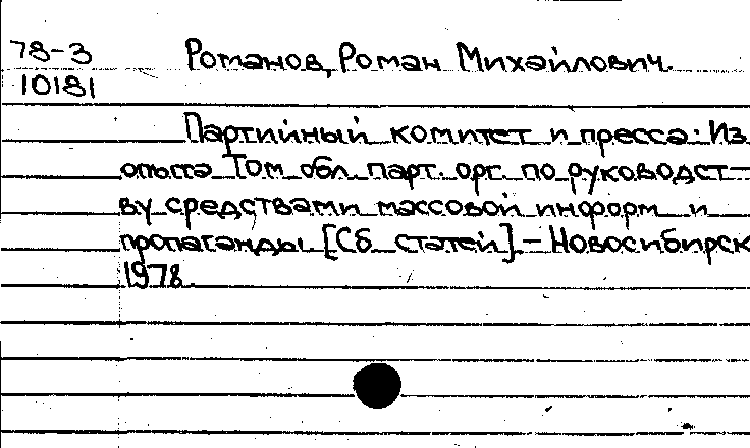 78-3 Романов, Роман Михайлович.
10181
Партийный комитет и пресса: Из
опыта Том. обл. парт. орг. по руководст-
ву средствами массовой информ. и
пропаганды. [Сб. статей]. - Новосибирск
1978.